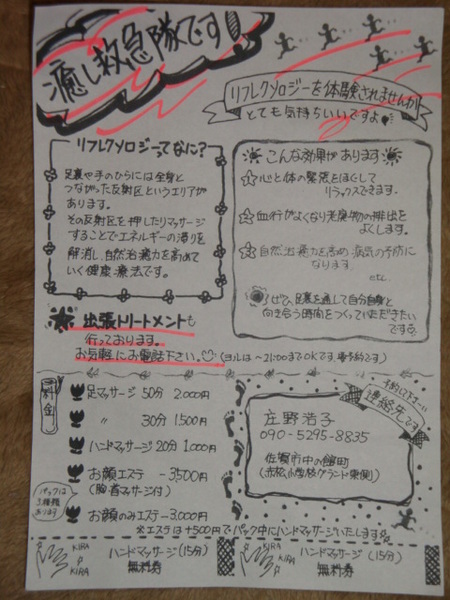 癒し救急隊です!
リフレクソロジーを体験されませんか
とても気持ちいいですよ
リフレクソロジーってなに?
足裏や手のひらには全身と
つながった反射区というエリアが
あります。
その反射区を押したりマッサージ
することでエネルギーの滞りを
解消し、自然治癒力を高めて
いく健康療法です。
こんな効果があります
☆心と体の緊張をほぐして
リラックスできます。
☆血行がよくなり老廃物の排出を
よくします。
☆自然治癒力を高め病気の予防に
なります。
etc.
ぜひ、足裏を通して自分自身と
向き合う時間をつくっていただきたい
です
出張トリートメントも
行っております。
お気軽にお電話下さい。(ヨルは~21:00までOKです 要予約です)
料金
足マッサージ 50分 2.000円
〃 30分 1.500円
ハンドマッサージ 20分 1.000円
お顔エステ -3,500円
(胸・首マッサージ付)
お顔のみエステ-3.000円
パックは
3種類
あります
※エステは+500円でパック中にハンドマッサージいたします
予約してネ…
連絡先です
庄野浩子
090-5295-8835
佐賀市中の館町
(赤松小学校グランド東側)
KIRA KIRA
ハンドマッサージ(15分)
無料券
KIRA KIRA
ハンドマッサージ(15分)
無料券